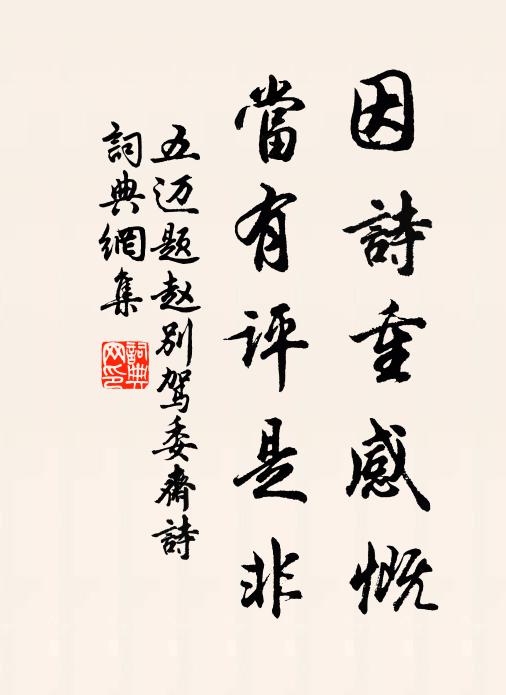 因詩重感慨
當有評是非
五迈题赵別駕委齋詩
詞典網集
詞典网印